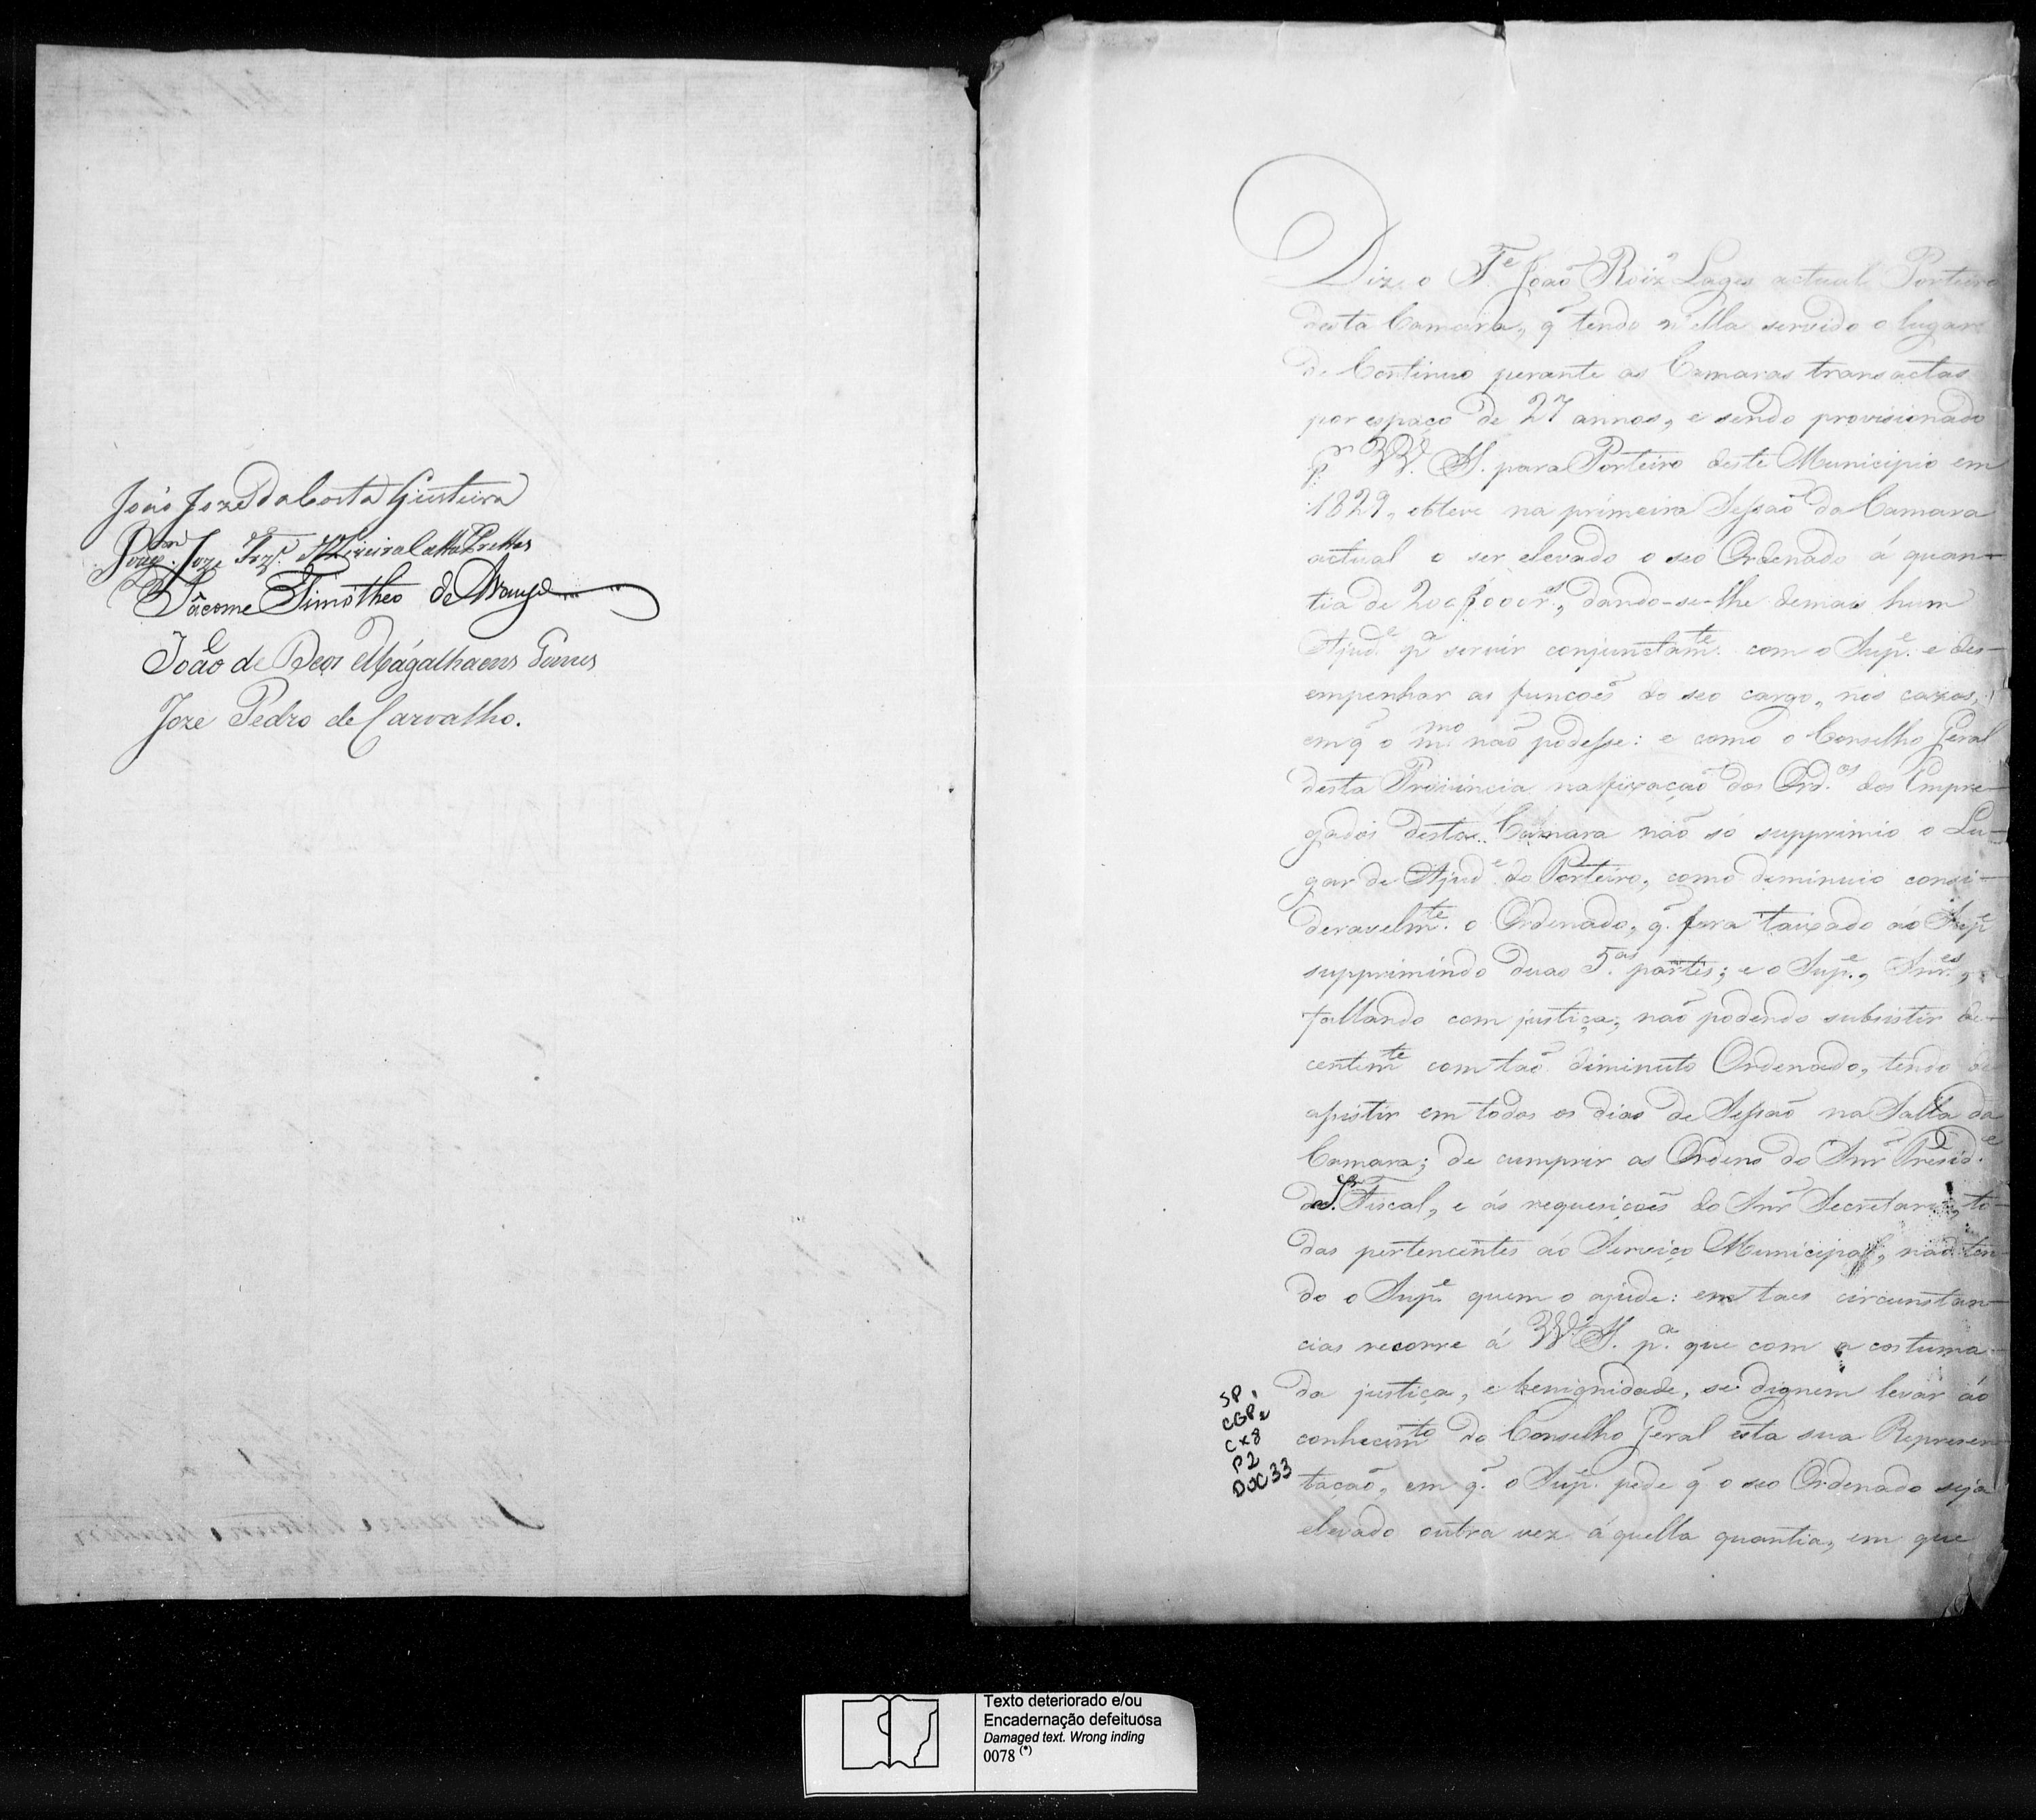 João Joze da Costa Gusteira
Joaqm. Joze
Jácome Timotheo de Araujo
João de Deos Mágalhaens Gomes
Joze Pedro de Carvalho.
Diz o Te. João Roiz Lages actual Porteiro
desta Camara, q̃ tendo n'ella servido o lugar
de Continuo perante as Camaras transactas
por espaço de 27 annos, e sendo provisionado
pr. VV. S. para Porteiro deste Municipio em
1829, obteve na primeira Sessaõ da Camara
actual o ser elevado o seo Ordenado á quan-
tia de 200$000 rs., dando-se-lhe demais hum
Ajude. pa. servir conjunctamte. com o Supe. e des-
empenhar as funcoẽs do seo cargo, nos cazos,
em q̃ o mmo. naõ podesse: e como o Conselho Geral
desta Provincia na fixaçaõ dos Ord.os dos Empre-
gados desta Camara naõ só supprimio o Lu-
gar de Ajude. do Porteiro, como diminuio consi-
deravelmte. o Ordenado, q̃. fora taixado ao Supe.
supprimindo duas 5.as partes; e o Supe., Snres.,
fallando com justiça, naõ podendo subsistir de-
centemte com taõ diminuto Ordenado, tendo de
assistir em todos os dias de Sessaõ na Salla da
Camara; de cumprir as Ordens do Snr̃ Preside.
do Sr. Fiscal, e ás requesiçoẽs do Snr̃ Secretario, to-
das pertencentes ao Serviço Municipal, naõ ten-
do o Supe. quem o ajude: em taes circunstan-
cias recorre á VV. S. pa. que com a costuma-
da justiça, e benignidade, se dignem levar ao
conhecimto do Conselho Geral esta sua Represen-
taçaõ, em q̃. o Supe. pede q̃ o seo Ordenado seja
elevado outra vez áquella quantia, em que
SP,
CGP2
CX8
P2
DOC33
Texto deteriorado e/ou
Encadernação defeituosa
Damaged text. Wrong inding
0078 (*)